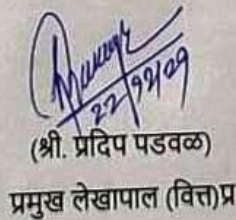 22/12/21
(श्री. प्रदिप पडवळ)
प्रमुख लेखापाल (वित्त)प्र